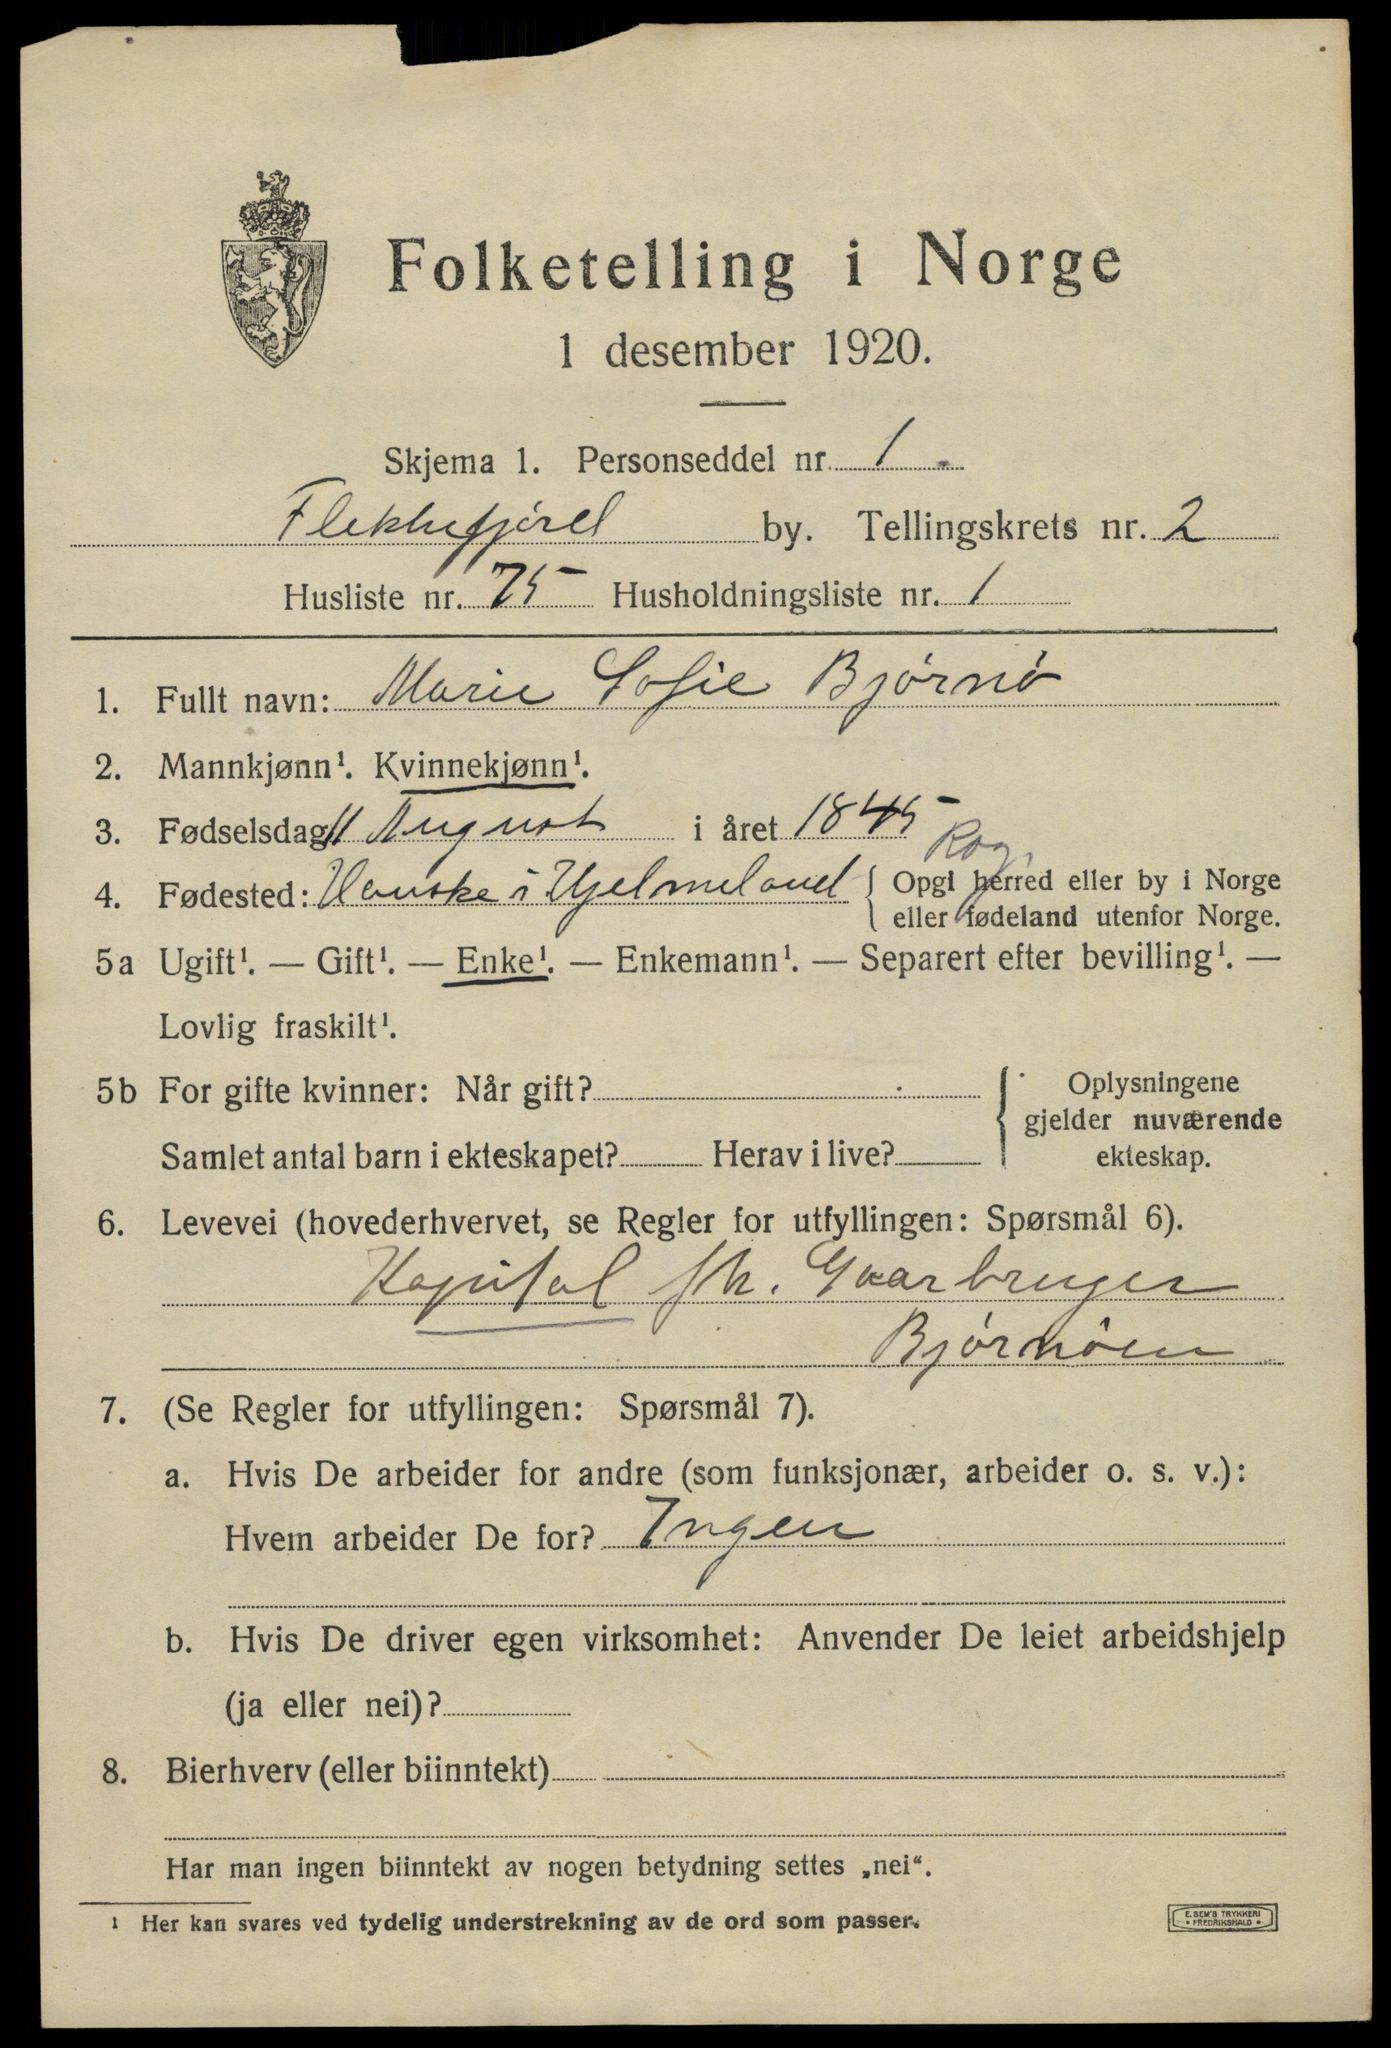 Folketelling i Norge
1 desember 1920.
Skjema 1. Personseddel nr. 1
Flekkefjord by. Tellingskrets nr. 2
Husliste nr. 75 Husholdningsliste nr. 1
1. Fullt navn: Marie Sofie Bjørnø
2. Mannkjønn¹. Kvinnekjønn¹.
3. Fødselsdag 11 August i året 1845
Rog.
4. Fødested: i Hjelmeland { Opgi herred eller by i Norge
eller fødeland utenfor Norge.
5a Ugift¹. — Gift¹. — Enke¹. — Enkemann¹. — Separert efter bevilling¹. —
Lovlig fraskilt¹.
5b For gifte kvinner: Når gift?
Samlet antal barn i ekteskapet? Herav i live?
{ Oplysningene
gjelder nuværende
ekteskap.
6. Levevei (hovederhvervet, se Regler for utfyllingen: Spørsmål 6).
Kapital fh. Gaarbruger
Bjørnøen
7. (Se Regler for utfyllingen: Spørsmål 7).
a. Hvis De arbeider for andre (som funksjonær, arbeider o. s. v.):
Hvem arbeider De for? Ingen
b. Hvis De driver egen virksomhet: Anvender De leiet arbeidshjelp
(ja eller nei)?
8. Bierhverv (eller biinntekt)
Har man ingen biinntekt av nogen betydning settes „nei“.
¹ Her kan svares ved tydelig understrekning av de ord som passer.
E. SEM'S TRYKKERI
• FREDRIKSHALD •